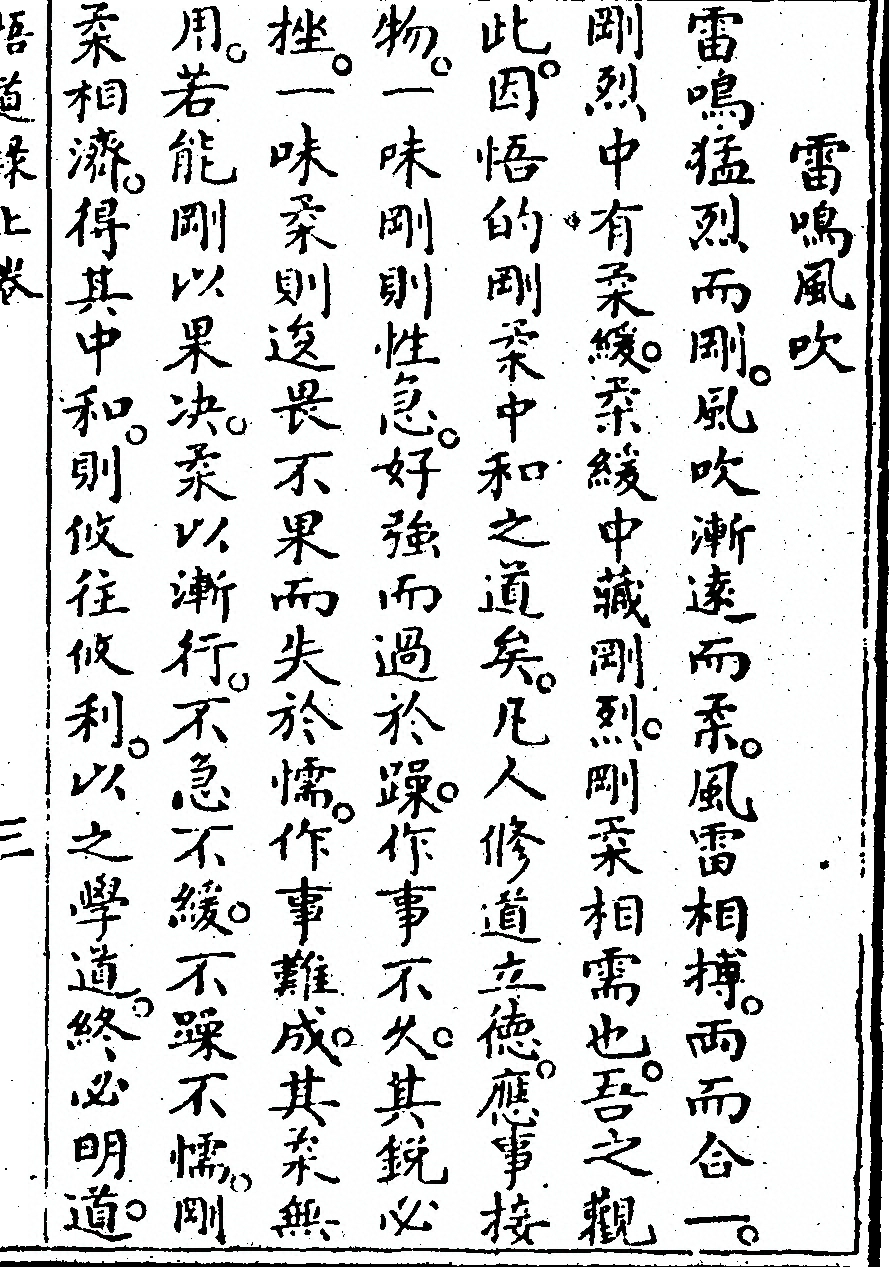 雷鳴風吹
雷鳴猛烈而剛。風吹漸遠而柔。風雷相搏。両而合一。
剛烈中有柔緩。柔緩中藏剛烈。剛柔相需也。吾之觀
此。因悟的剛柔中和之道矣。凡人修道立德。應事接
物。一味剛則性急。好強而過於躁。作事不久。其銳必
挫。一味柔則逡畏不果而失於懦。作事難成。其柔無
用。若能剛以果决。柔以漸行。不急不緩。不躁不懦。剛
柔相濟。得其中和。則攸往攸利。以之學道。終必明道。
悟道錄上卷 三